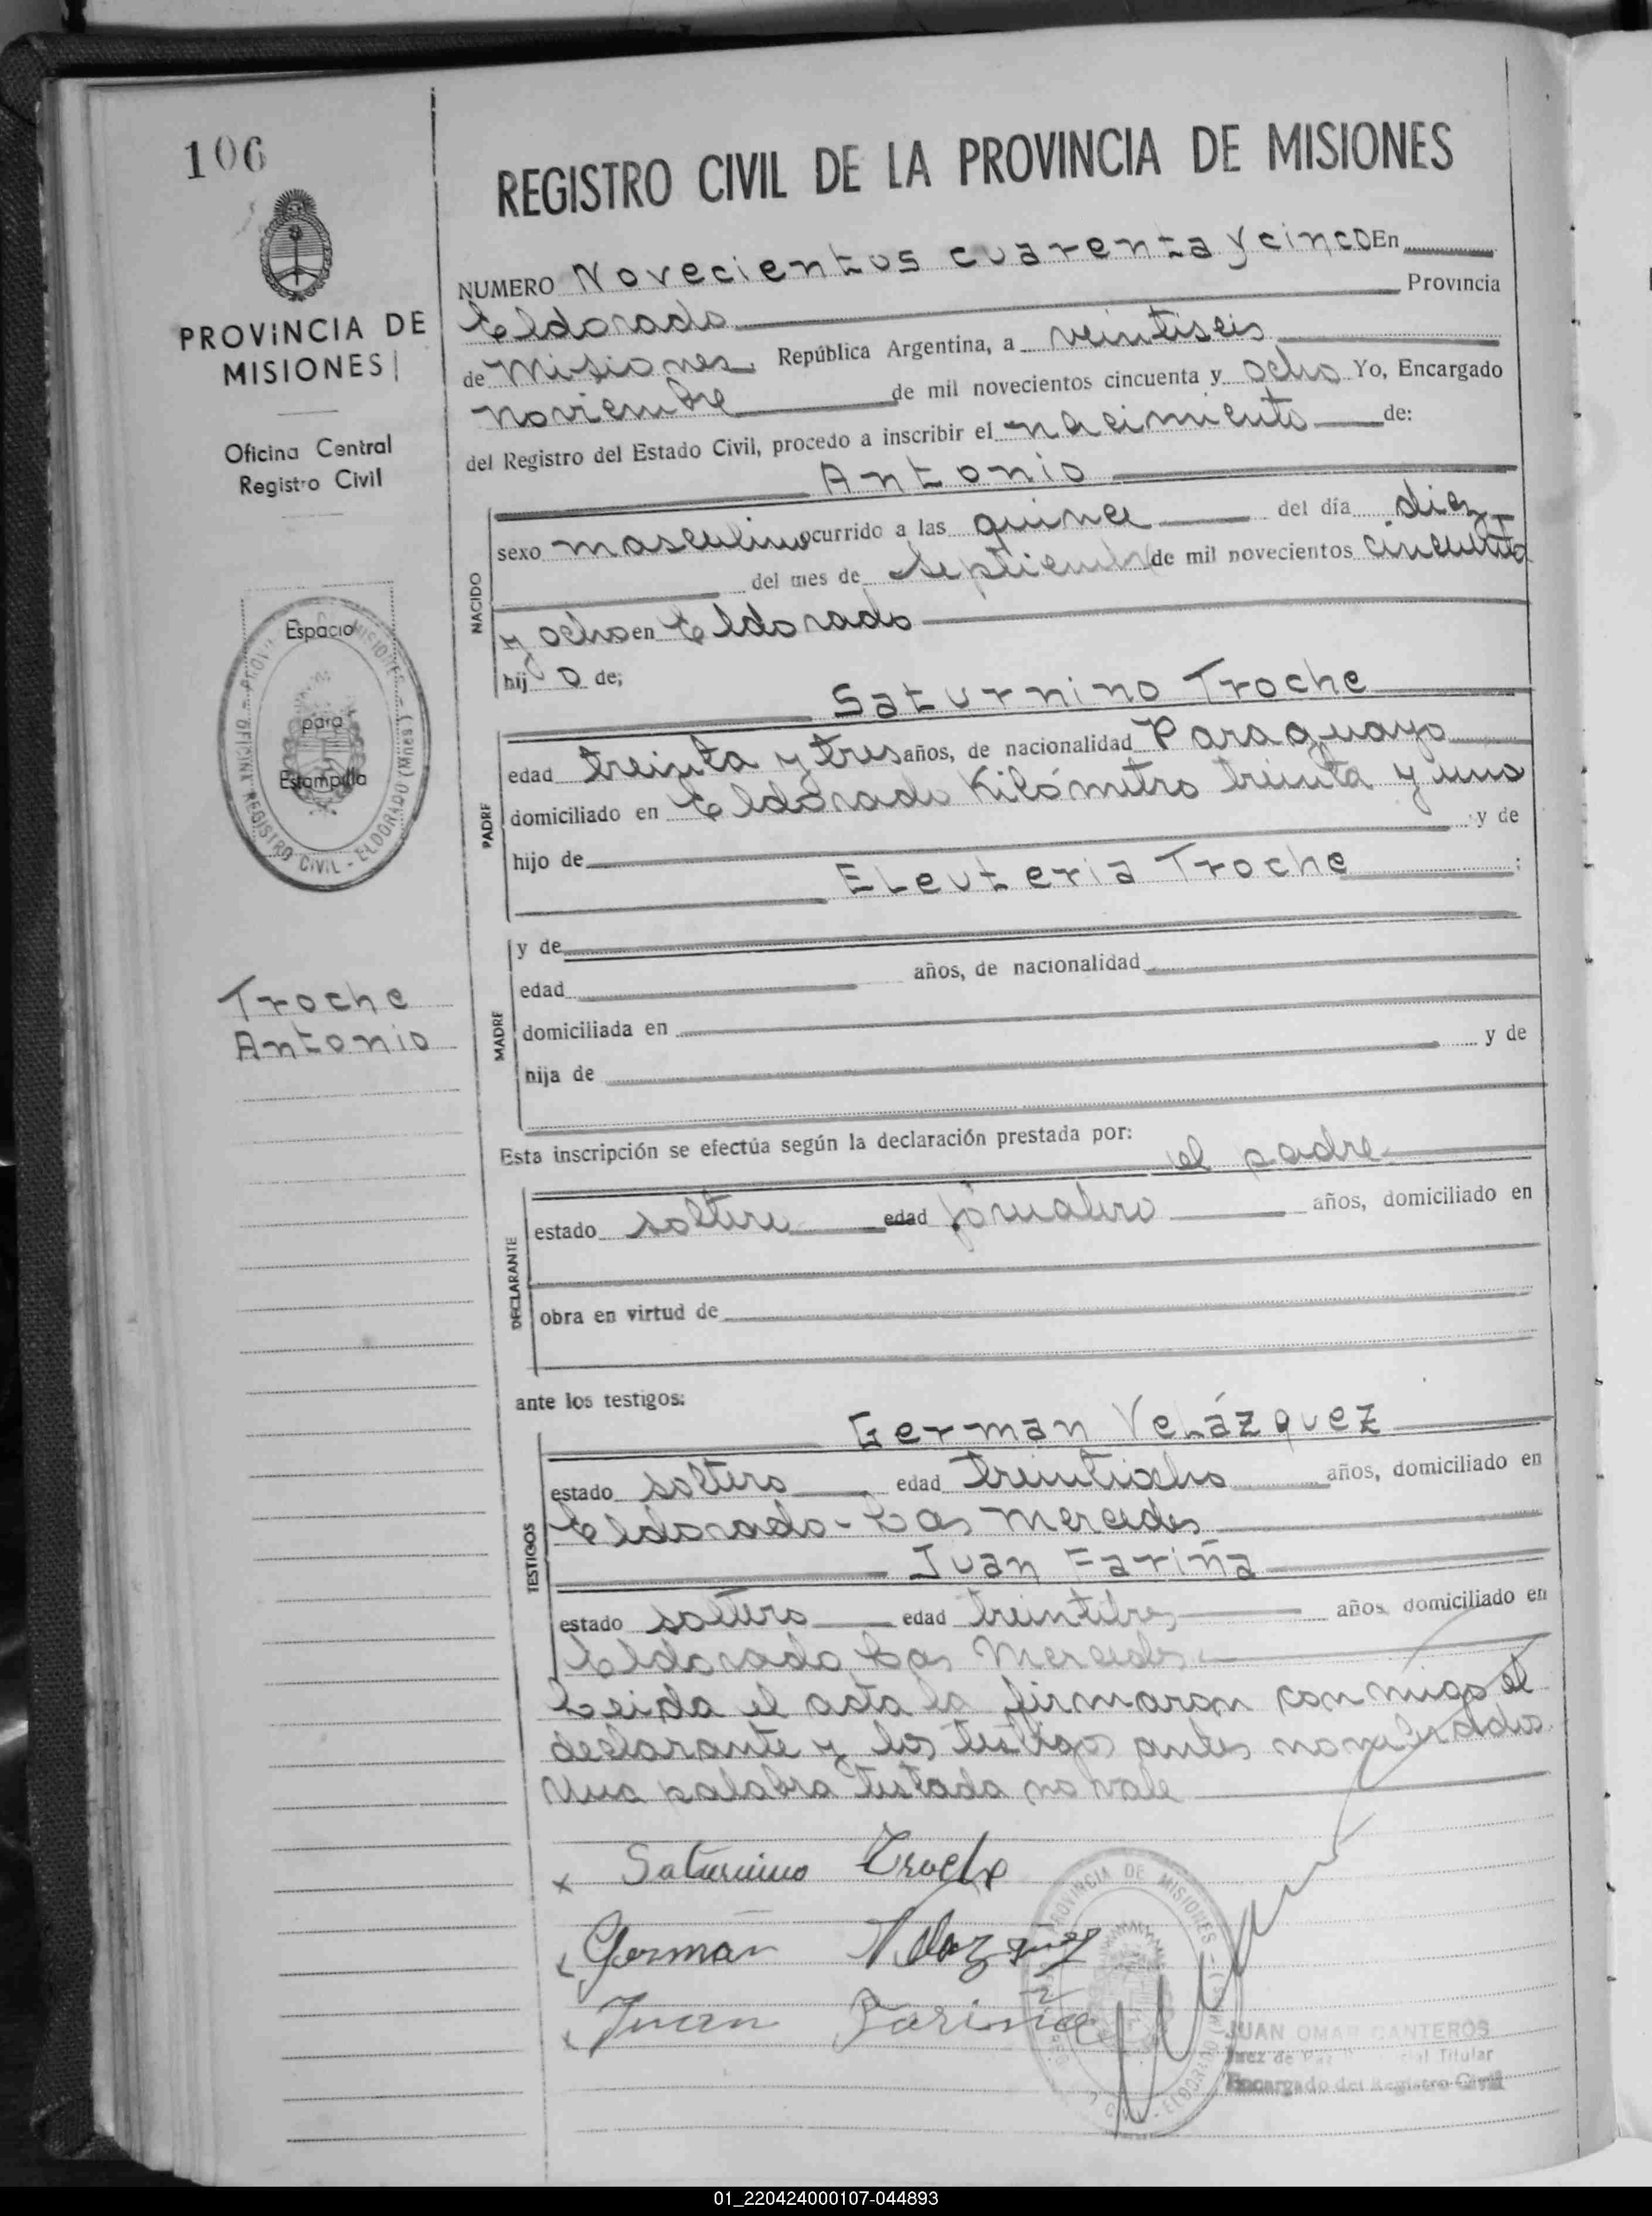 106
REGISTRO CIVIL DE LA PROVINCIA DE MISIONES
PROVINCIA DE
MISIONES
Oficina Central
Registro Civil
Espacio
para
Estampilla
OFICINA REGISTRO CIVIL - ELDORADO (Mnes)
Troche
Antonio
NUMERO Novecientos cuarenta y cinco En
Eldorado Provincia
de Misiones República Argentina, a veintiseis
noviembre de mil novecientos cincuenta y ocho Yo, Encargado
del Registro del Estado Civil, procedo a inscribir el nacimiento de:
Antonio
NACIDO
sexo masculino ocurrido a las quince del día diez
del mes de Septiembre de mil novecientos cincuenta
y ocho en Eldorado
hij o de;
Saturnino Troche
PADRE
edad treinta y tres años, de nacionalidad Paraguayo
domiciliado en Eldorado Kilómetro treinta y uno
hijo de y de
Eleuteria Troche :
MADRE
y de
edad años, de nacionalidad
domiciliada en
hija de y de
Esta inscripción se efectúa según la declaración prestada por:
el padre
DECLARANTE
estado soltero edad jornalero años, domiciliado en
obra en virtud de
ante los testigos:
German Velázquez
TESTIGOS
estado soltero edad treintiocho años, domiciliado en
Eldorado - Las Mercedes
Juan Fariña
estado soltero edad treintitres años, domiciliado en
Eldorado Las Mercedes
Leida el acta la firmaron conmigo el
declarante y los testigos antes nombrados
Una palabra testada no vale
x Saturnino Troche
x German Velazquez
x Juan Fariña
PROVINCIA DE MISIONES
JUAN OMAR CANTEROS
Juez de Paz Titular
Encargado del Registro Civil
01_220424000107-044893